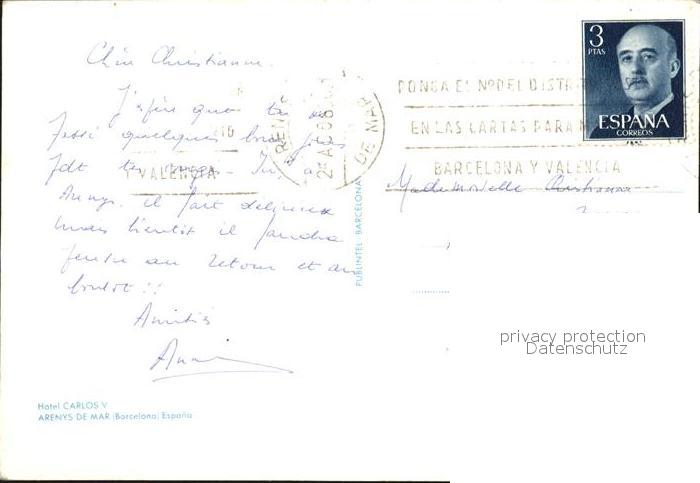 Chère Christianne.
J'espère que tu as
passé quelques bons jours
Ici à
Arenys, il fait délicieux
mais bientôt il faudra
penser au retour et au
boulot !!
Amitiés
Hotel CARLOS V
ARENYS DE MAR (Barcelona) España
PUBLINTEL BARCELONA
ARENYS DE MAR
VALENCIA
PONGA EL Nº DEL DISTR
EN LAS CARTAS PARA
BARCELONA Y VALENCIA
3
PTAS
ESPAÑA
CORREOS
Mademoiselle Christianne
privacy protection
Datenschutz